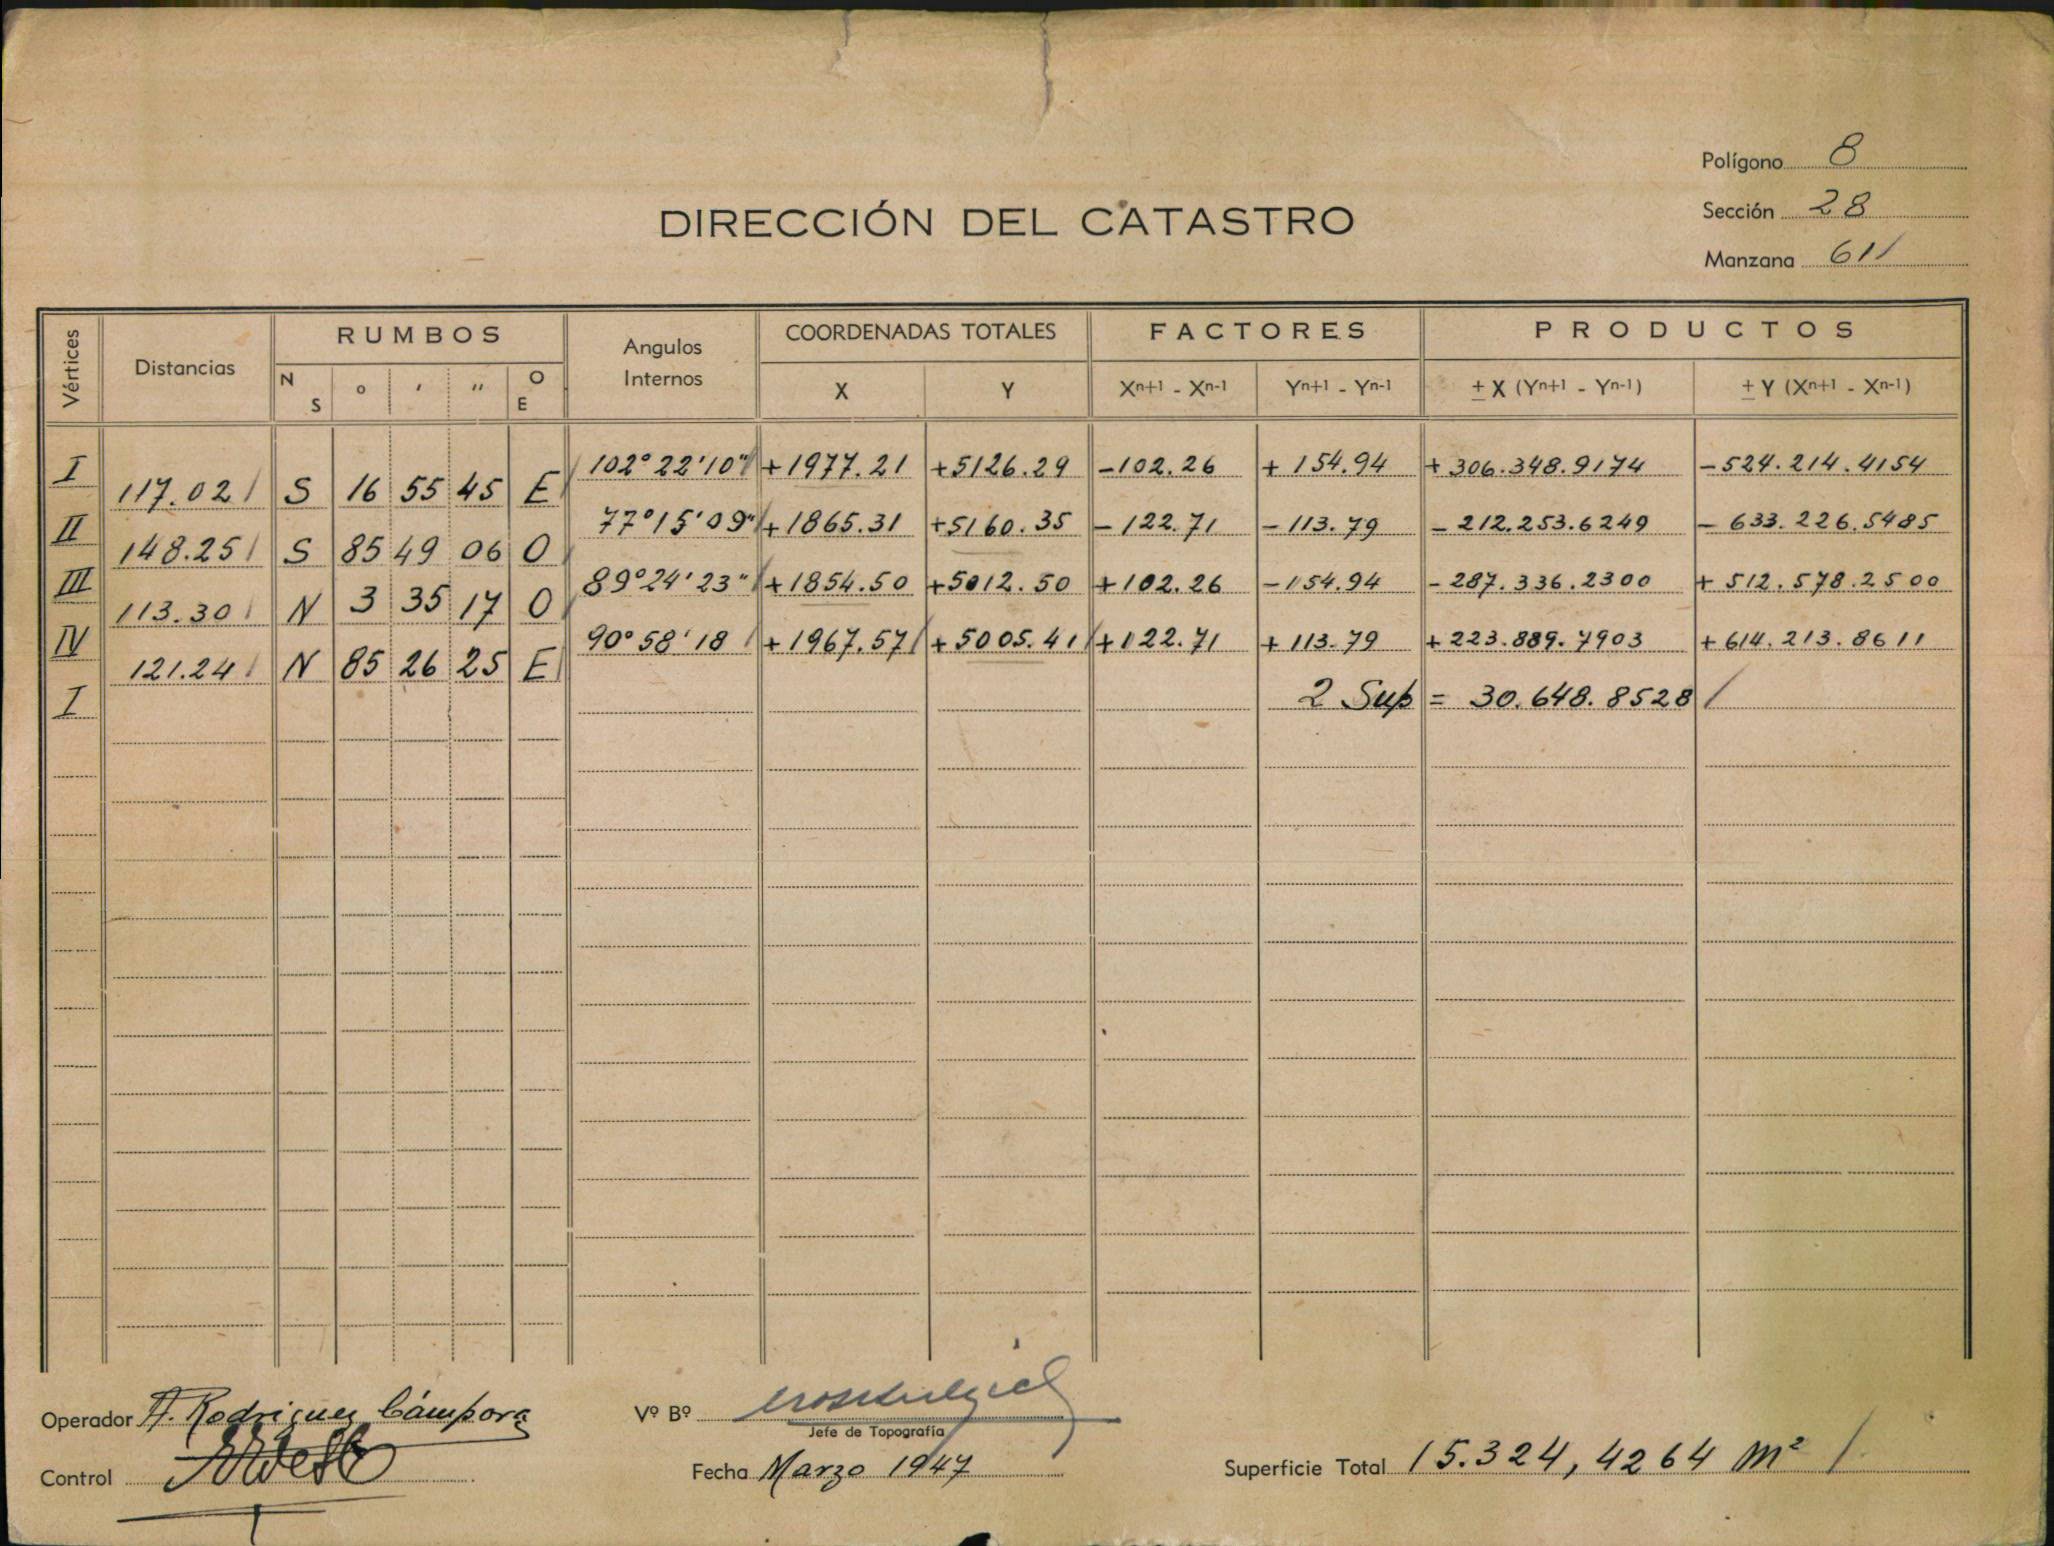 Polígono 8
DIRECCIÓN DEL CATASTRO
Sección 28
Manzana 611
Vértices Distancias RUMBOS Angulos Internos COORDENADAS TOTALES FACTORES PRODUCTOS
N S ° ' " O E X Y Xn+1 - Xn-1 Yn+1 - Yn-1 ± X (Yn+1 - Yn-1) ± Y (Xn+1 - Xn-1)
I 102° 22' 10" +1977.21 +5126.29 -102.26 +154.94 +306.348.9174 -524.214.4154
117.02 S 16 55 45 E
II 77° 15' 09" +1865.31 +5160.35 -122.71 -113.79 -212.253.6249 -633.226.5485
148.25 S 85 49 06 O
III 89° 24' 23" +1854.50 +5012.50 +102.26 -154.94 -287.336.2300 +512.578.2500
113.30 N 3 35 17 O
IV 90° 58' 18 +1967.57 +5005.41 +122.71 +113.79 +223.889.7903 +614.213.8611
121.24 N 85 26 25 E
I 2 Sup = 30.648.8528
Operador A. Rodriguez Cámpora Vº Bº
Jefe de Topografía
Control Fecha Marzo 1947 Superficie Total 15.324,4264 m²